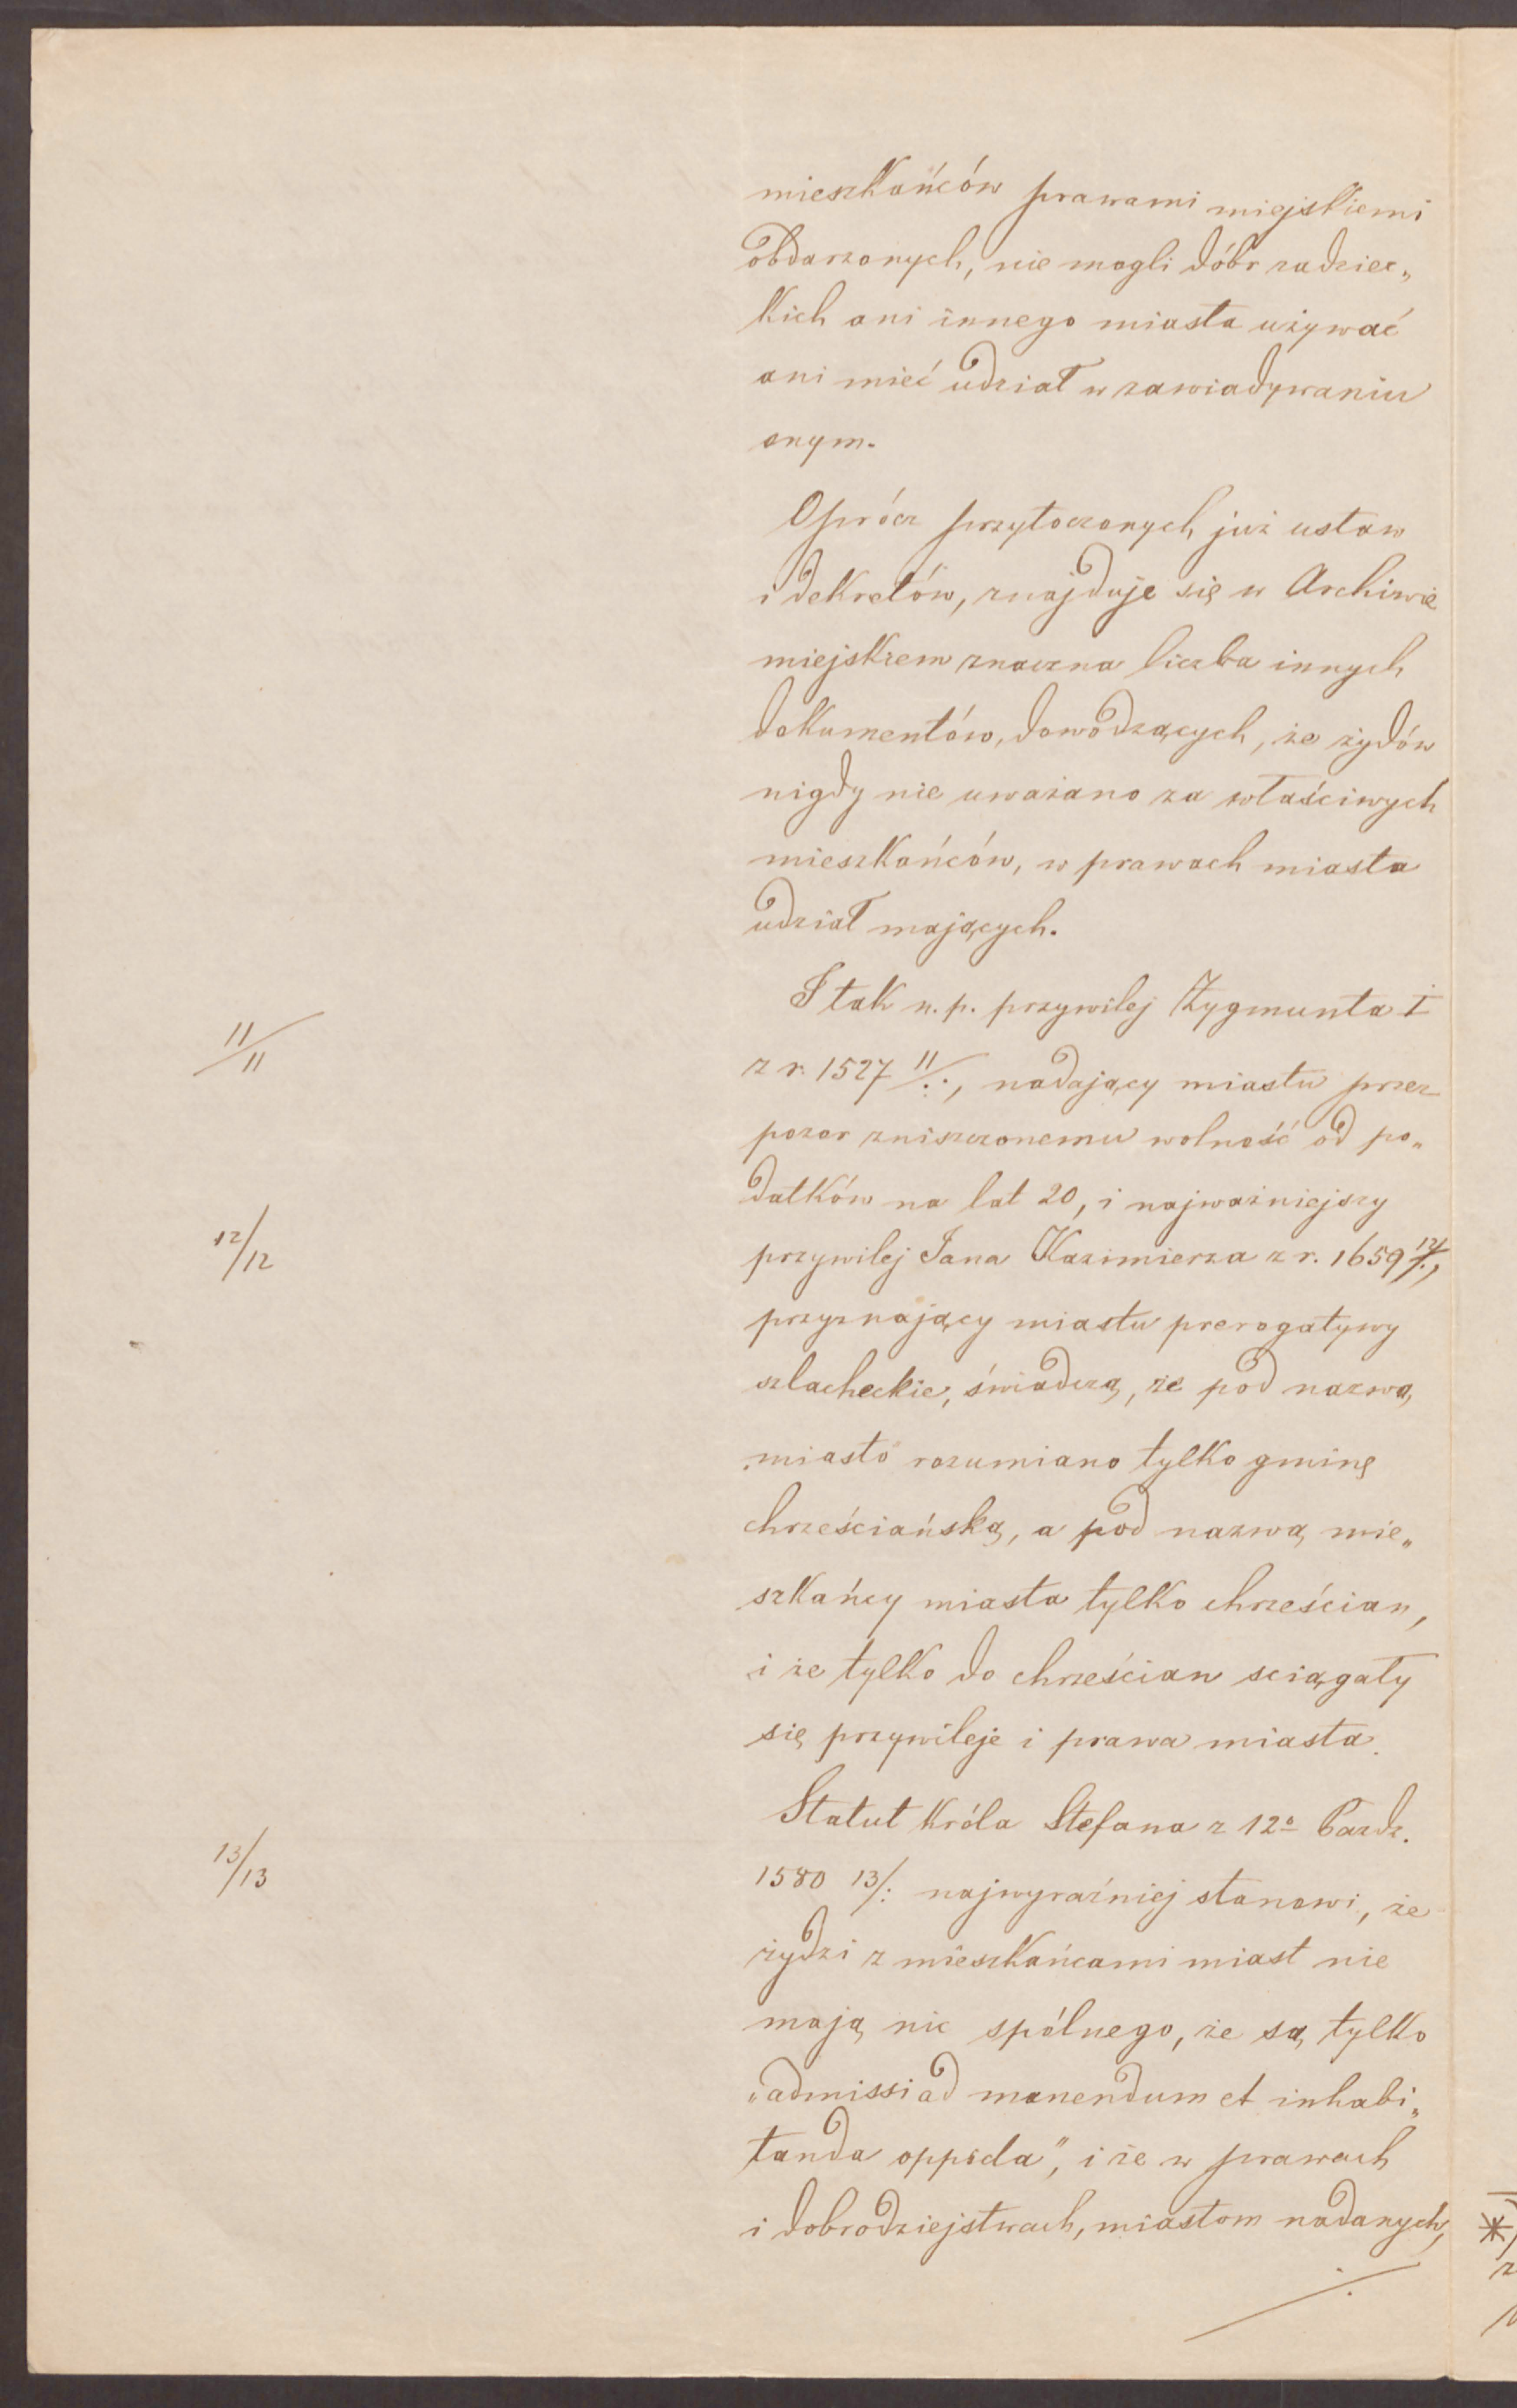 mieszkańców prawami miejskiemi
obdarzonych, nie mogli dóbr radziec„
kich ani innego miasta używać
ani mieć udział w zawiadywaniu
onym.
Oprócz przytoczonych już ustaw
i dekretów, znajduje się w Archiwie
miejskiem znaczna liczba innych
dokumentów, dowodzących, że żydów
nigdy nie uważano za właściwych
mieszkańców, w prawach miasta
udział mających.
I tak n. p. przywilej Zygmunta I
11/11
z r. 1527 11/:, nadający miastu przez
pożar zniszczonemu wolność od po„
datków na lat 20, i najważniejszy
12/12
przywilej Jana Kazimierza z r. 1659 12/:,
przyznający miastu prerogatywy
szlacheckie, świadczą, że pod nazwą
miasto rozumiano tylko gminę
chrześciańską, a pod nazwą mie„
szkańcy miasta tylko chrześcian,
i że tylko do chrześcian sciągały
się przywileje i prawa miasta.
Statut króla Stefana z 12º Pazdz.
13/13
1580 13/: najwyraźniej stanowi, że
żydzi z mieszkańcami miast nie
mają nic spólnego, że są tylko
„admissi ad manendum et inhabi„
tanda oppida", i że w prawach
i dobrodziejstwach, miastom nadanych,
./.